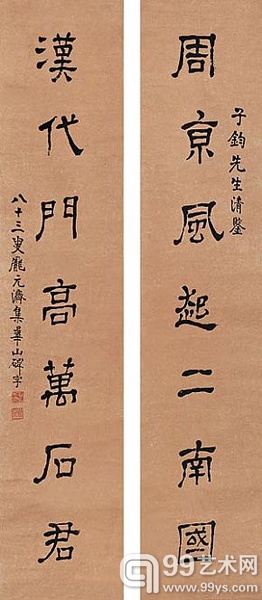 子鈞先生清鑒
周亰風起二南國
漢代門高萬石君
八十三叟龐元濟集華山碑字
99艺术网
www.99ys.com